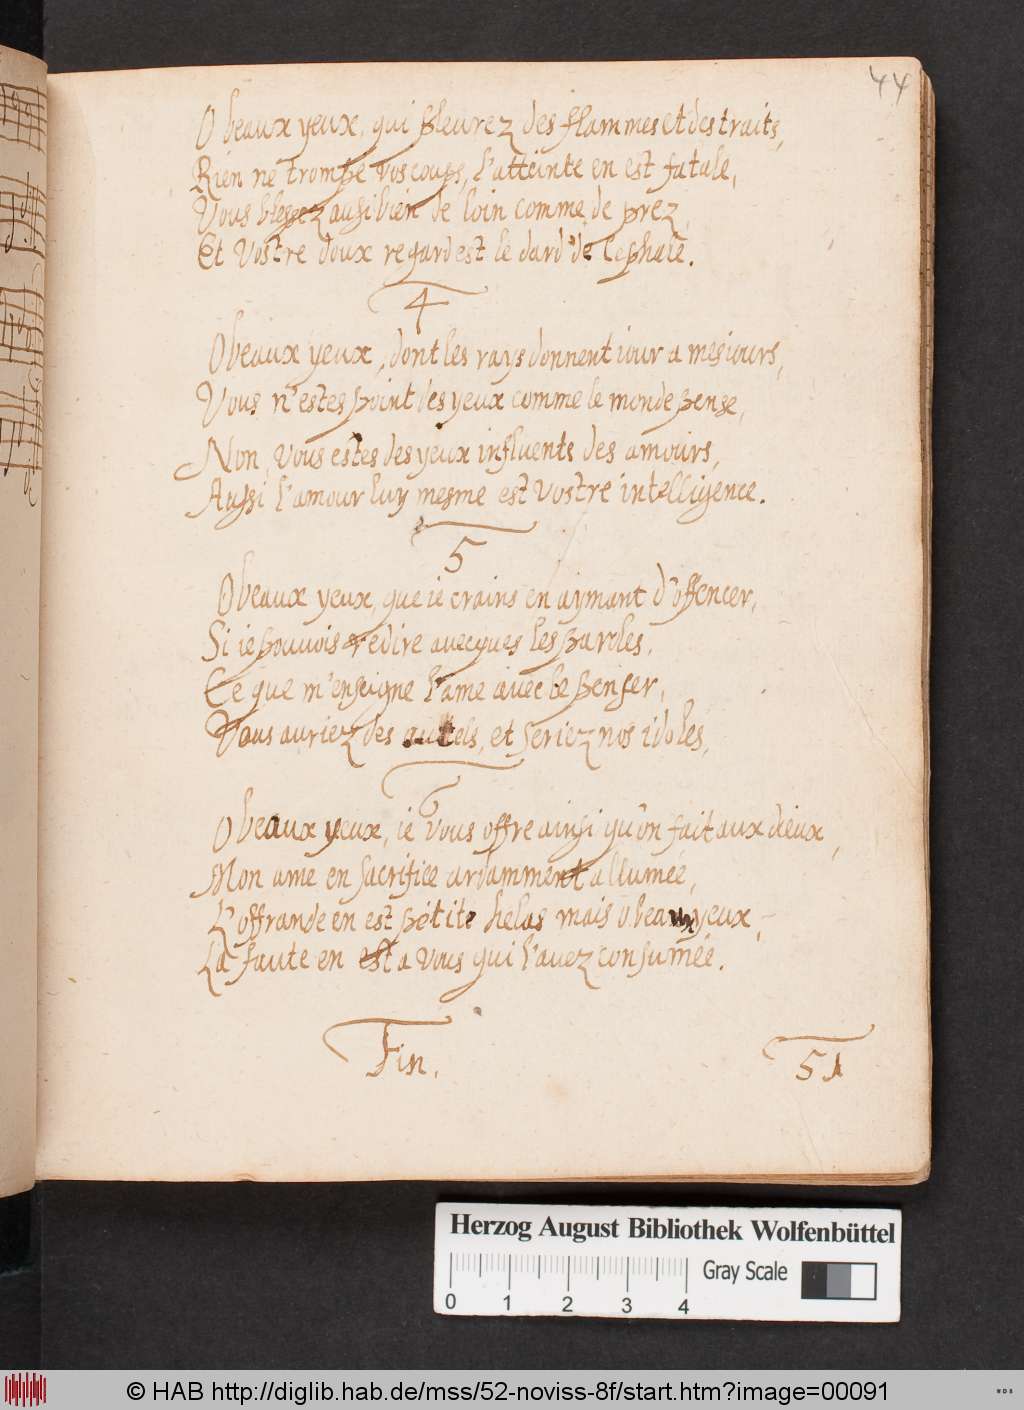 44
O beaux yeux, qui pleurez des flammes et des traits,
Rien ne trompe vos coups, l'atteinte en est fatale,
Vous blessez aussi bien de loin comme de prez,
Et Vostre doux regard est le dard de Cephale.
4
O beaux yeux, dont les rays donnent iour a mes iours,
Vous n'estes point des yeux comme le monde pense,
Non, Vous estes des yeux influents des amours,
Aussi l'amour luy mesme est Vostre intelligence.
5
O beaux yeux, que ie crains en aymant d'offencer,
Si ie pouuois redire auecques les paroles,
Ce que m'enseigne l'ame auec le penser,
Vous auriez des autels, et seriez nos idoles,
6
O beaux yeux, ie Vous offre ainsi qu'on fait aux dieux,
Mon ame en sacrifice ardamment allumée,
L'offrande en est petite helas mais o beaux yeux,
La faute en est a Vous qui l'auez consumée.
Fin.
51
Herzog August Bibliothek Wolfenbüttel
Gray Scale
0 1 2 3 4
© HAB http://diglib.hab.de/mss/52-noviss-8f/start.htm?image=00091